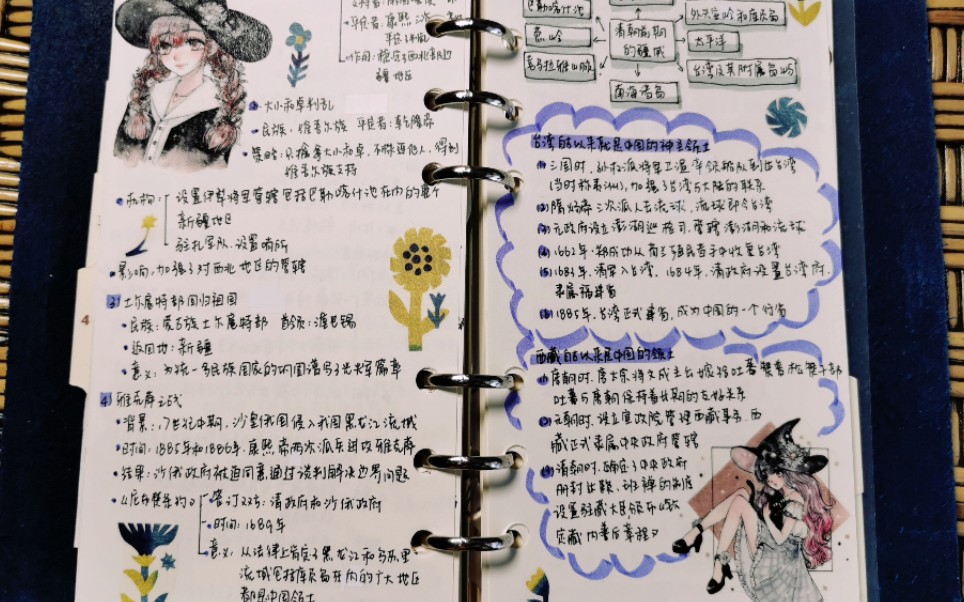 平定者:康熙
作用:稳定了西北部边
疆地区
大小和卓判乱
民族:维吾尔族 平定者:乾隆帝
策略:只擒拿大小和卓,不株连他人,得到
维吾尔族支持
机构:
设置伊犁将军管辖包括巴勒喀什池在内的整个
新疆地区
驻扎军队、设置哨所
影响:加强了对西北地区的管辖
3)土尔扈特部回归祖国
民族:蒙古族土尔扈特部 首领:渥巴锡
返回地:新疆
意义:为统一多民族国家的巩固谱写了光荣篇章
4
4)雅克萨之战
背景:17世纪中期,沙皇俄国侵入我国黑龙江流域
时间:1885年和1886年,康熙帝两次派兵进攻雅克萨
结果:沙俄政府被迫同意通过谈判解决边界问题
《尼布楚条约》
签订双方:清政府和沙俄政府
时间:1689年
意义:从法律上肯定了黑龙江和乌苏里
流域包括库页岛在内的广大地区
都是中国领土
巴勒喀什池
葱岭
喜马拉雅山脉
清朝前期
的疆域
南海诸岛
外兴安岭和库页岛
太平洋
台湾及其附属岛屿
台湾自古以来就是中国的神圣领土
(1)三国时,孙权派将军卫温率领船队到达台湾
(当时称夷洲),加强了台湾与大陆的联系
(2)隋炀帝三次派人去流球,流球即今台湾
(3)元政府设立澎湖巡检司,管辖澎湖和流球
(4)1662年,郑成功从荷兰殖民者手中收复台湾
(5)1683年,清军入台湾,1684年,清政府设置台湾府,
隶属福建省
(6)1885年,台湾正式建省,成为中国的一个行省
西藏自古以来是中国的领土
(1)唐朝时,唐太宗将文成公主嫁给吐蕃赞普松赞干部
吐蕃与唐朝保持着长期的友好关系
(2)元朝时,设立宣政院管理西藏事务,西
藏正式隶属中央政府管辖
(3)清朝时,确定了中央政府
册封达赖、班禅的制度
设置驻藏大臣颁布《钦
定藏内善后章程》